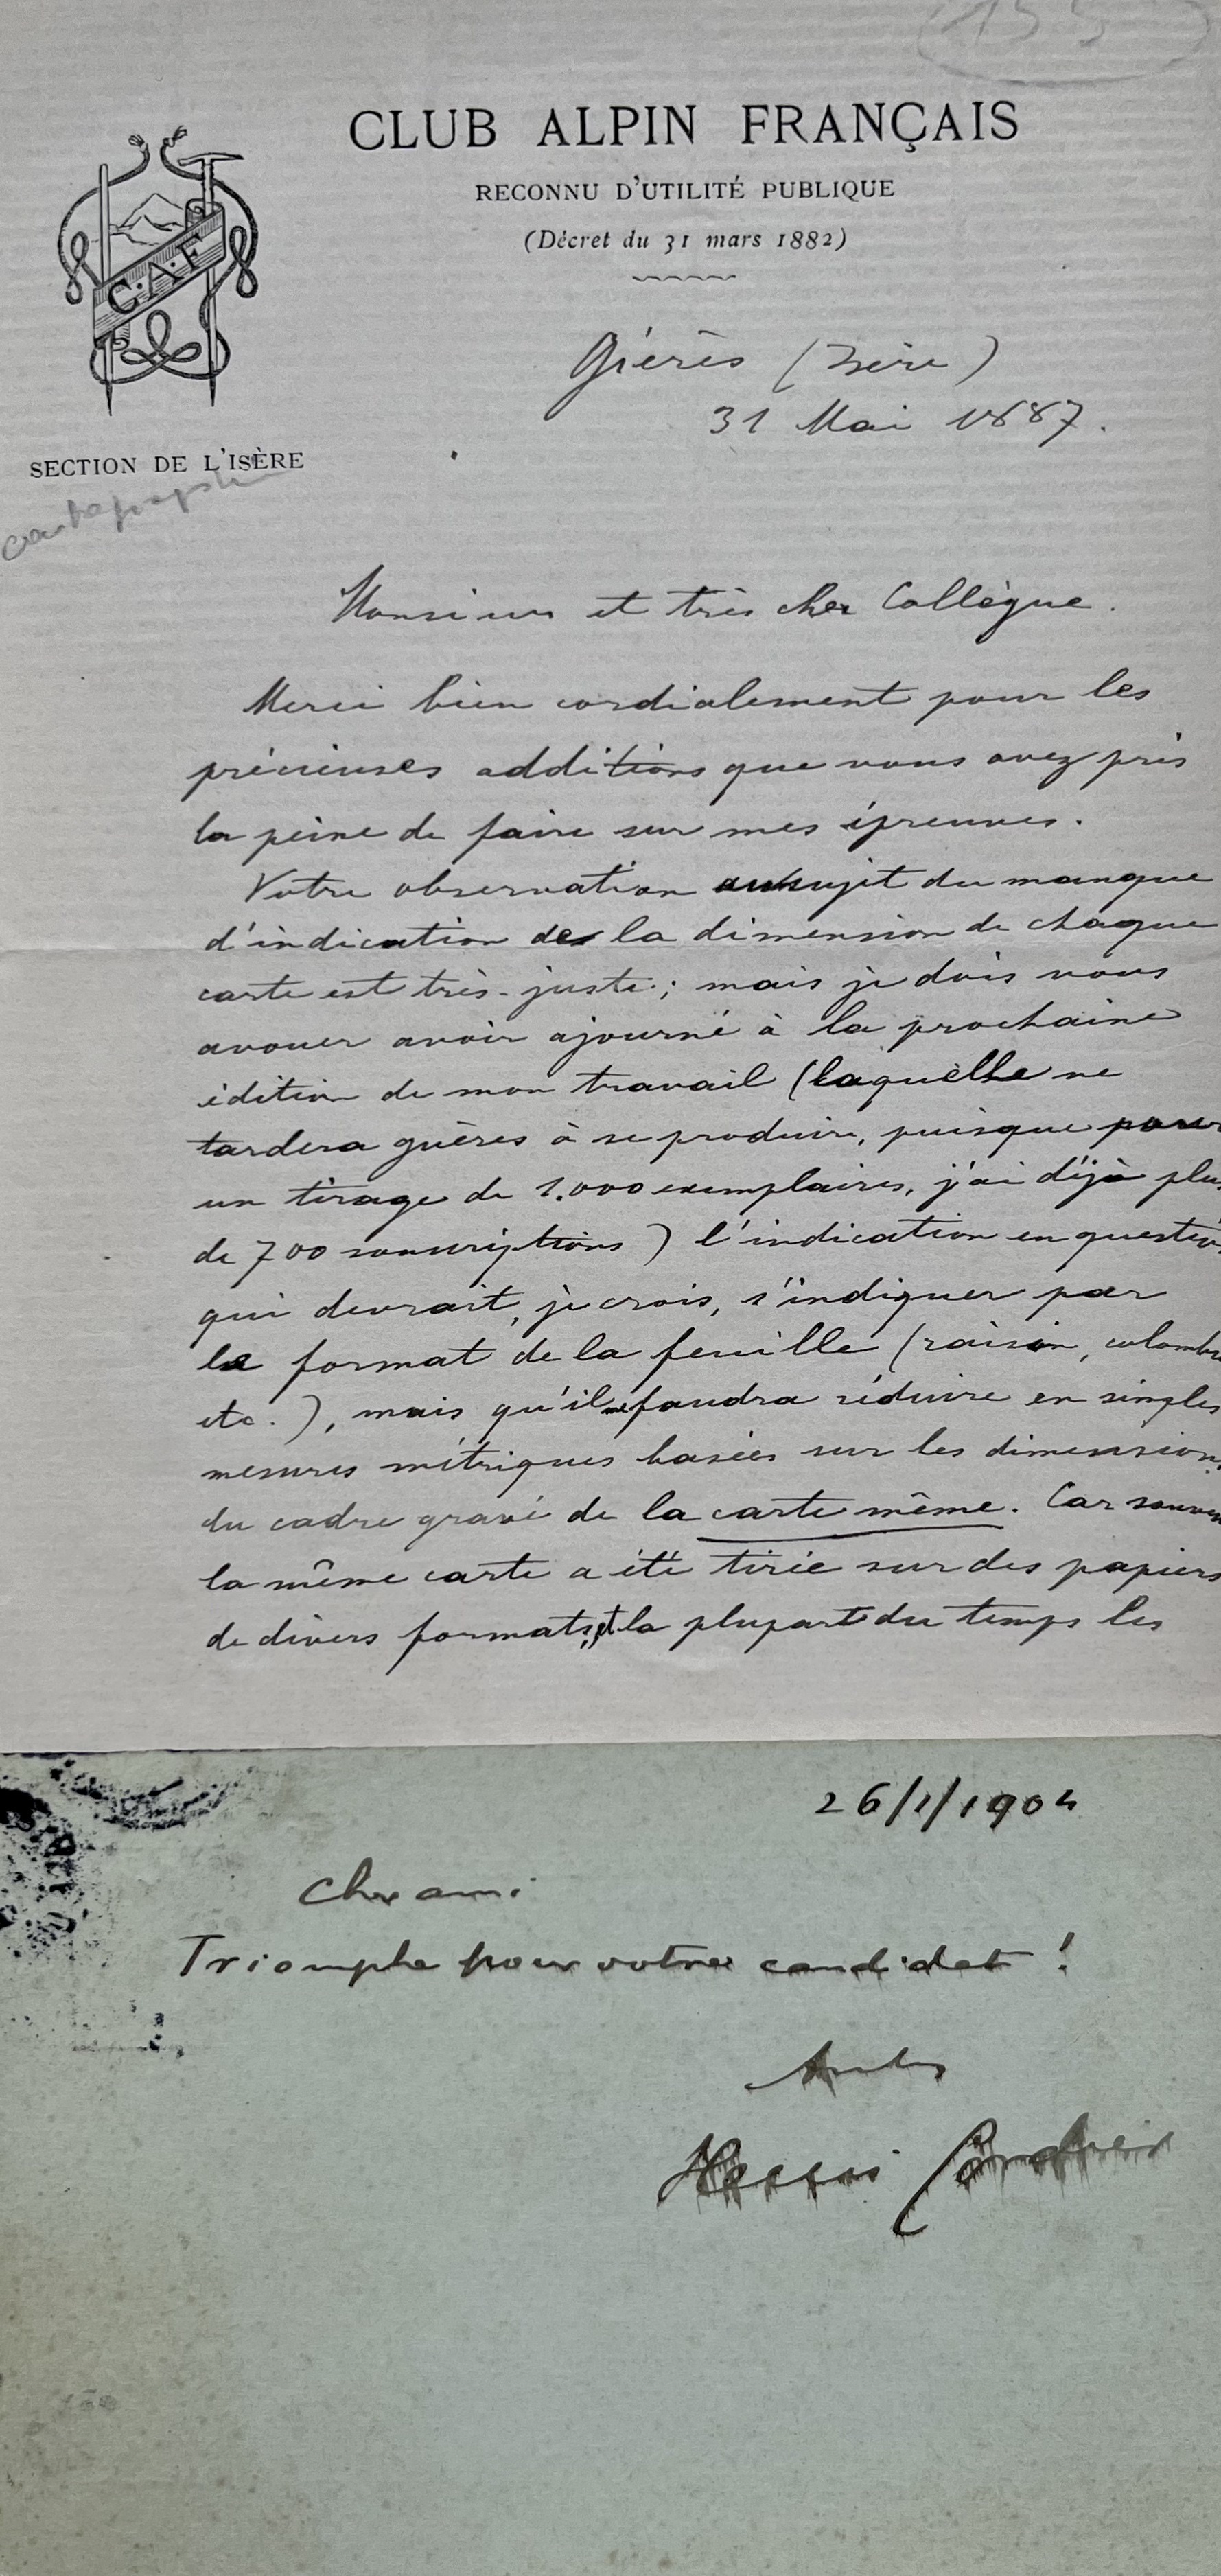 155
CLUB ALPIN FRANÇAIS
RECONNU D'UTILITÉ PUBLIQUE
(Décret du 31 mars 1882)
C.A.F
SECTION DE L'ISÈRE
Gières (Isère)
31 Mai 1887.
Monsieur et très cher Collègue.
Merci bien cordialement pour les
précieuses additions que vous avez pris
la peine de faire sur mes épreuves.
Votre observation au sujet du manque
d'indication de la dimension de chaque
carte est très-juste; mais je dois vous
avouer avoir ajourné à la prochaine
édition de mon travail (laquelle ne
tardera guères à se produire, puisque pour
un tirage de 1.000 exemplaires, j'ai déjà plus
de 700 souscriptions) l'indication en question
qui devrait, je crois, s'indiquer par
le format de la feuille (raisin, colombier
etc.), mais qu'il me faudra réduire en simples
mesures métriques basées sur les dimensions
du cadre gravé de la carte même. Car souvent
la même carte a été tirée sur des papiers
de divers formats, et la plupart du temps les
26/1/1904
Cher ami
Triomphe pour votre candidat !
Henri Cordier